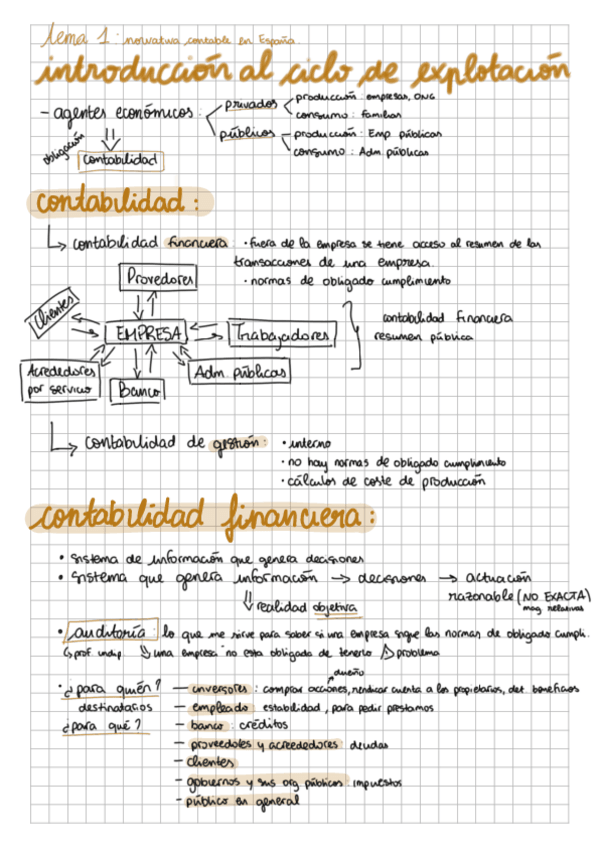 tema 1: normativa contable en España.
introducción al ciclo de explotación
- agentes económicos:
privados
producción: empresas, ONG
consumo: familias
públicos
producción: Emp públicas
consumo: Adm. públicas
obligación
contabilidad
contabilidad:
contabilidad financiera: • fuera de la empresa se tiene acceso al resumen de las
transacciones de una empresa.
• normas de obligado cumplimiento
Provedores
Clientes
EMPRESA
Trabajadores
contabilidad financiera
resumen pública
Acrededores
por servicio
Banco
Adm. públicas
contabilidad de gestión: • interno
• no hay normas de obligado cumplimiento
• cálculos de coste de producción
contabilidad financiera:
• sistema de información que genera decisiones
• sistema que genera información → decisiones → actuación
razonable (NO EXACTA)
mag relativas
realidad objetiva
• auditoría: lo que me sirve para saber si una empresa sigue las normas de obligado cumpli.
prof. indp
una empresa no esta obligada de tenerlo
problema
dueño
• ¿para quién? — inversores: comprar acciones, rendicar cuenta a los propietarios, det. beneficios
destinatarios — empleado: estabilidad, para pedir prestamos
¿para qué? — banco: créditos
— proveedores y acreededores: deudas
— clientes
— gobiernos y sus org públicos: impuestos
— público en general